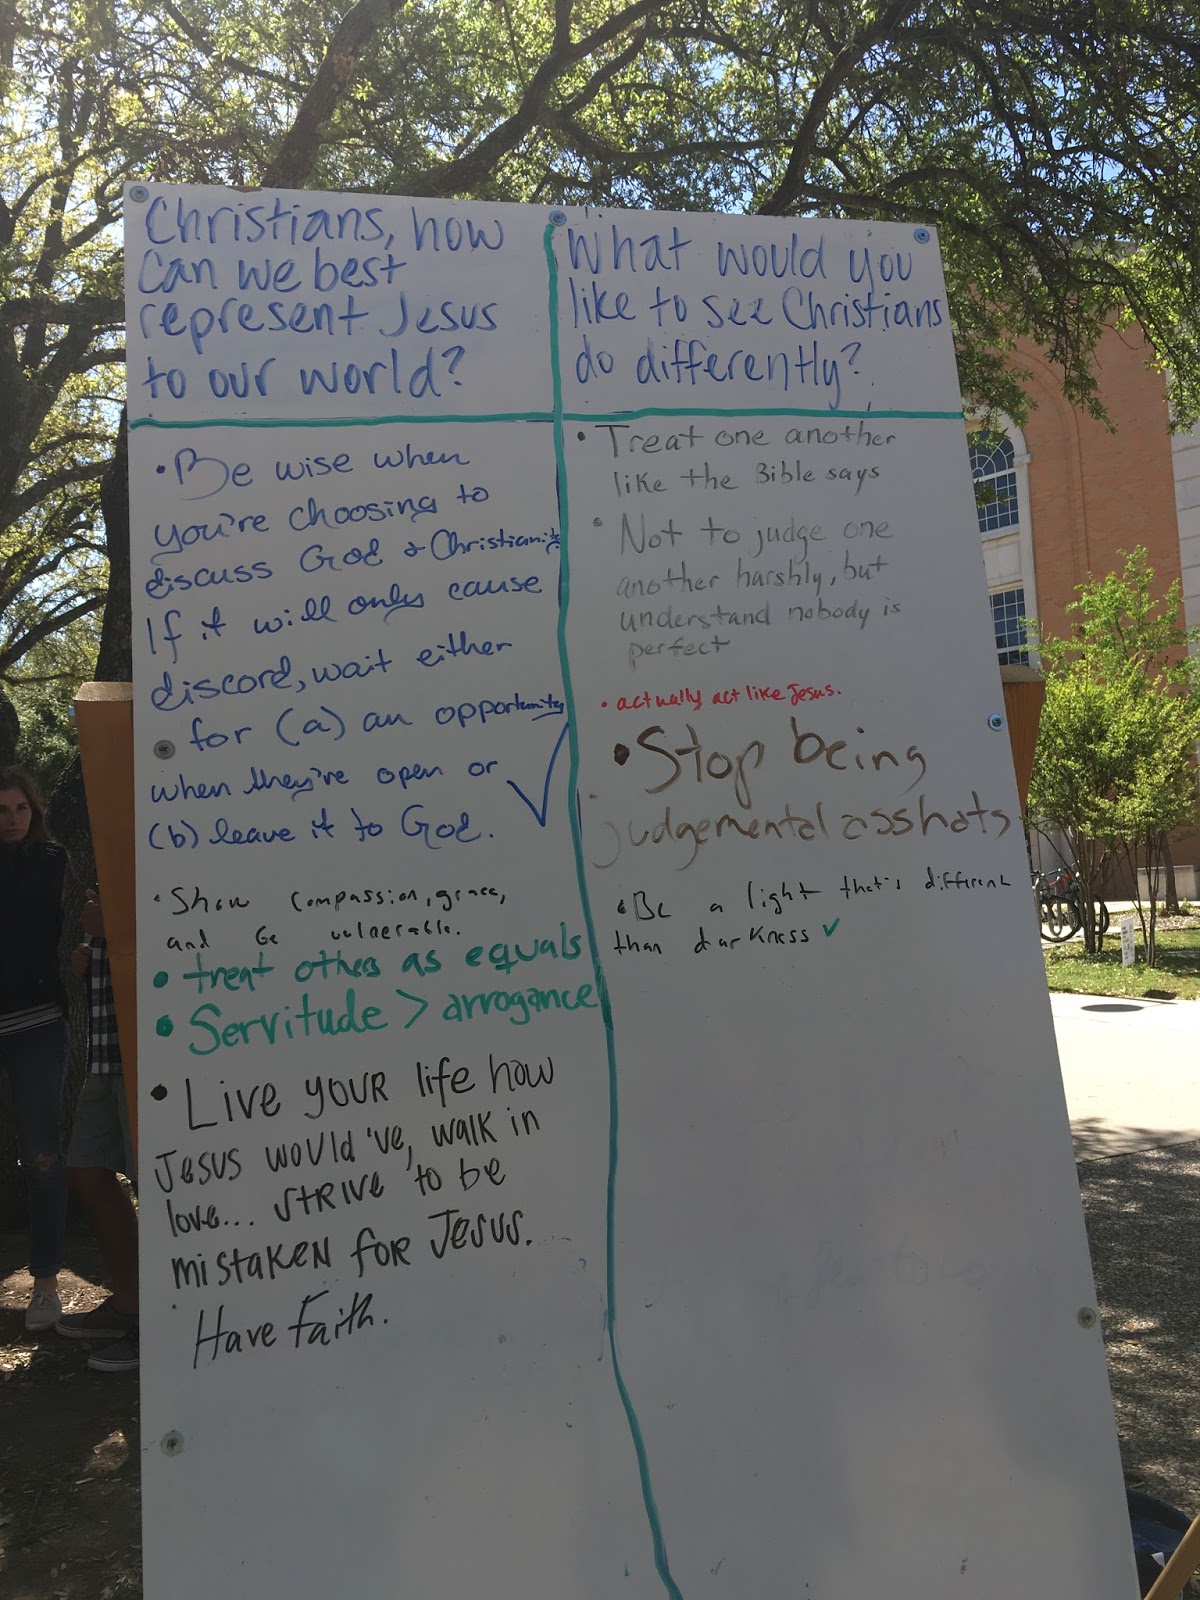 Christians, how
can we best
represent Jesus
to our world?
• Be wise when
you're choosing to
discuss God & Christianity
If it will only cause
discord, wait either
for (a) an opportunity
when they're open or
(b) leave it to God.
• Show compassion, grace,
and be vulnerable.
• treat others as equals
• Servitude > arrogance
• Live your life how
Jesus would've, walk in
love... strive to be
mistaken for Jesus.
Have Faith.
What would you
like to see Christians
do differently?
• Treat one another
like the Bible says
• Not to judge one
another harshly, but
understand nobody is
perfect
• actually act like Jesus.
• Stop being
judgemental asshats
• Be a light that's different
than darkness ✓